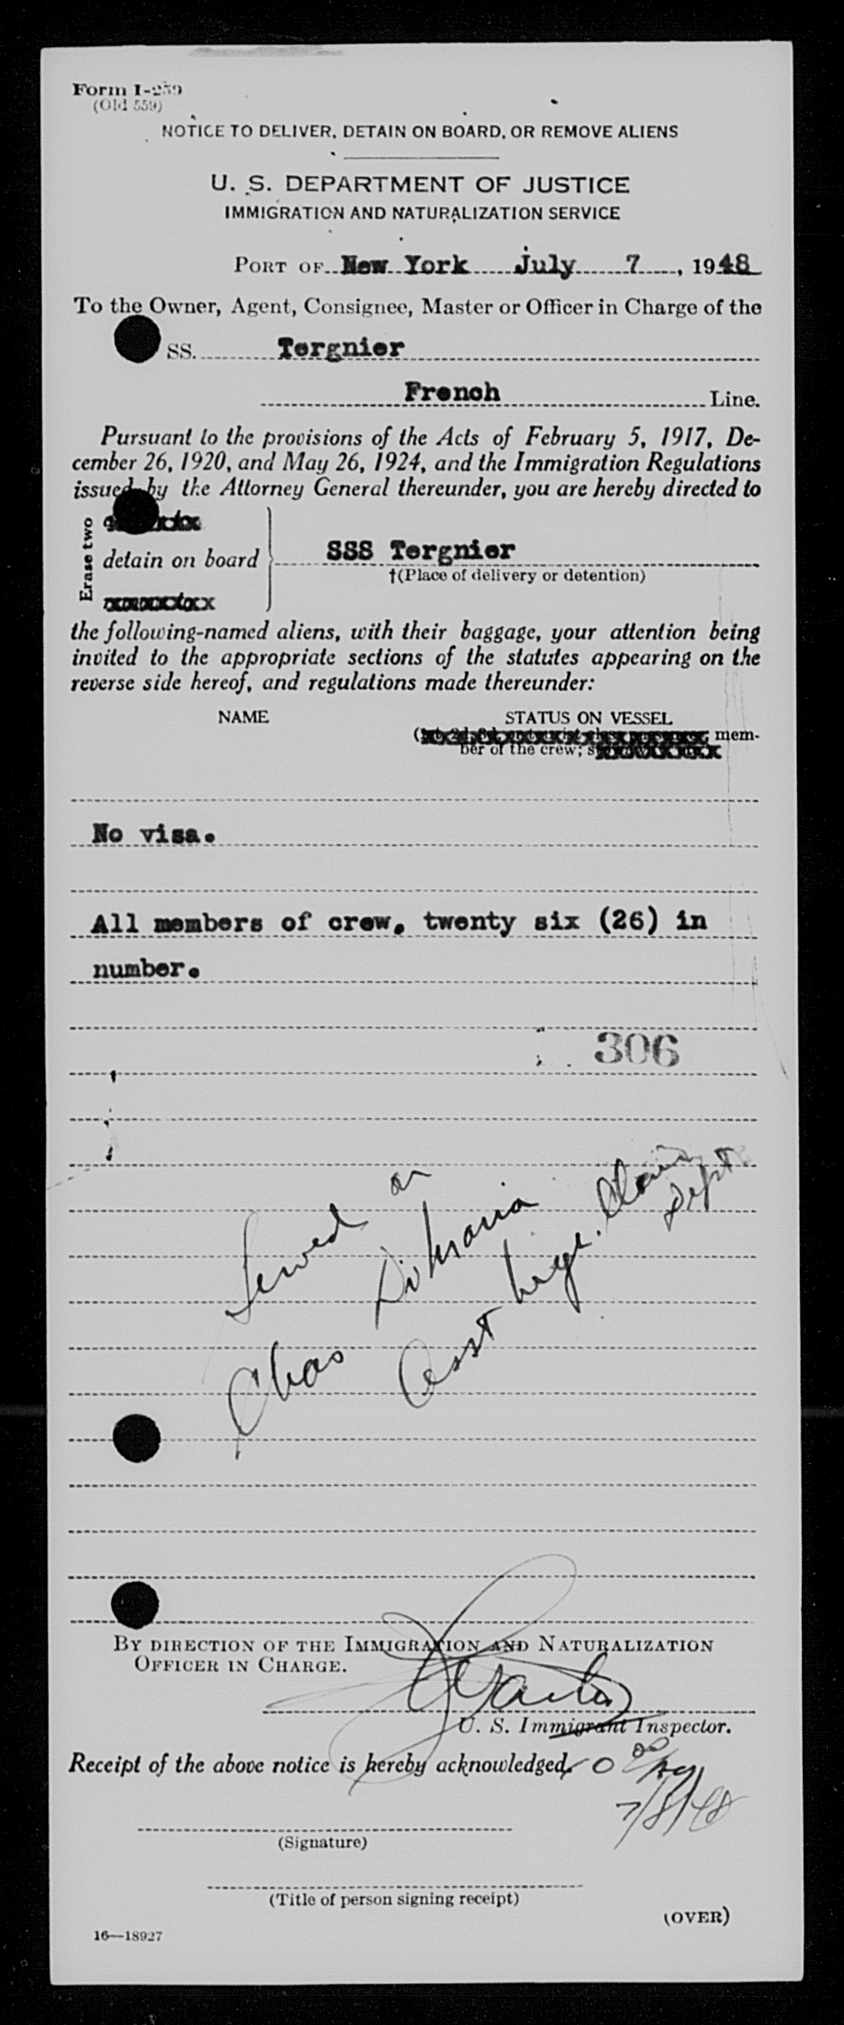 Form I-259
(Old 559)
NOTICE TO DELIVER, DETAIN ON BOARD, OR REMOVE ALIENS
U. S. DEPARTMENT OF JUSTICE
IMMIGRATION AND NATURALIZATION SERVICE
PORT OF New York July 7, 1948
To the Owner, Agent, Consignee, Master or Officer in Charge of the
SS. Tergnier
French Line.
Pursuant to the provisions of the Acts of February 5, 1917, De-
cember 26, 1920, and May 26, 1924, and the Immigration Regulations
issued by the Attorney General thereunder, you are hereby directed to
Erase two
detain on board
SSS Tergnier
†(Place of delivery or detention)
the following-named aliens, with their baggage, your attention being
invited to the appropriate sections of the statutes appearing on the
reverse side hereof, and regulations made thereunder:
NAME STATUS ON VESSEL
mem-
ber of the crew;
No visa.
All members of crew, twenty six (26) in
number.
306
Served on
Chas DiMaria
Asst Mgr. Claim
Dept.
BY DIRECTION OF THE IMMIGRATION AND NATURALIZATION
OFFICER IN CHARGE.
U. S. Immigrant Inspector.
Receipt of the above notice is hereby acknowledged.
7/8/48
(Signature)
(Title of person signing receipt)
(OVER)
16—18927